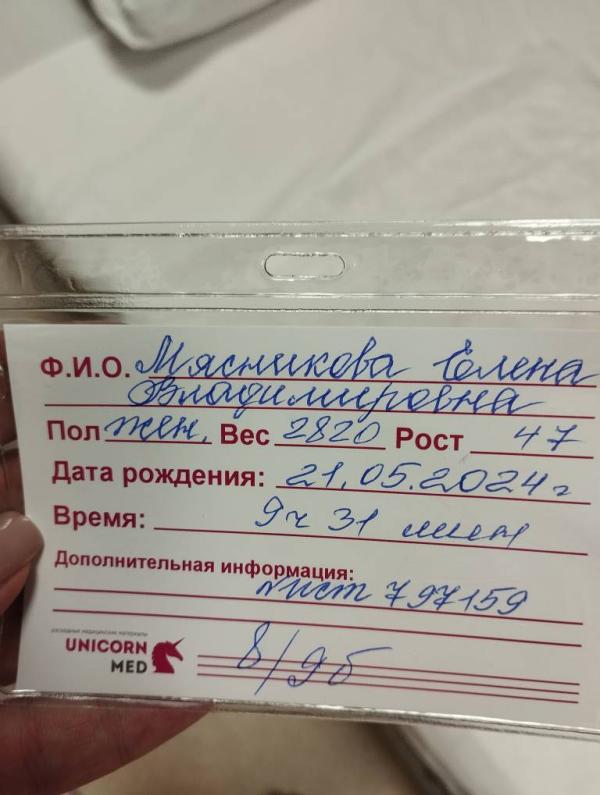 Ф.И.О. Мясникова Елена
Владимировна
Пол жен. Вес 2820 Рост 47
Дата рождения: 21.05.2024г
Время: 9ч 31 мин
Дополнительная информация:
лист 797159
расходные медицинские материалы
UNICORN
MED
8/9б